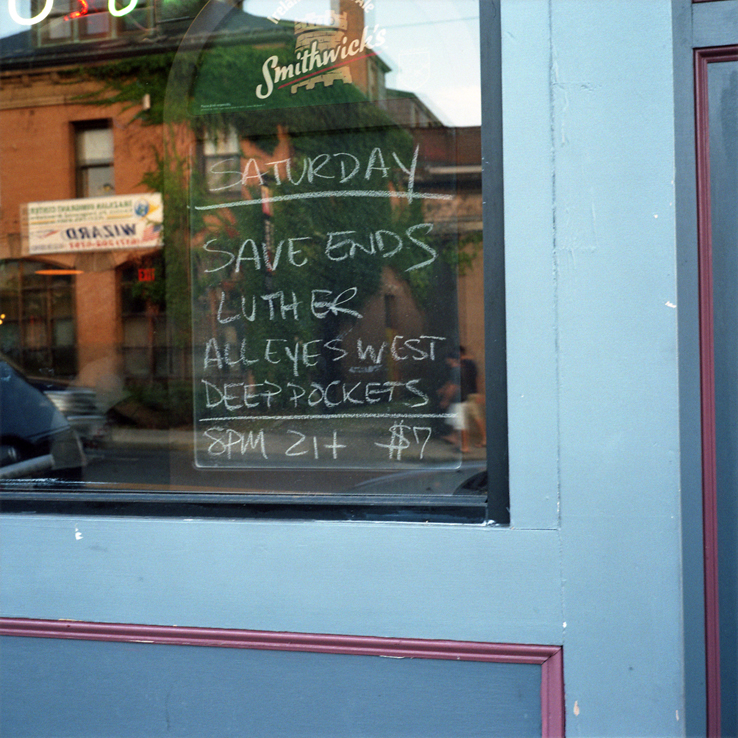 Smithwick's
SATURDAY
SAVE ENDS
LUTHER
ALL EYES WEST
DEEP POCKETS
8PM 21+ $7
WIZARD
EXIT